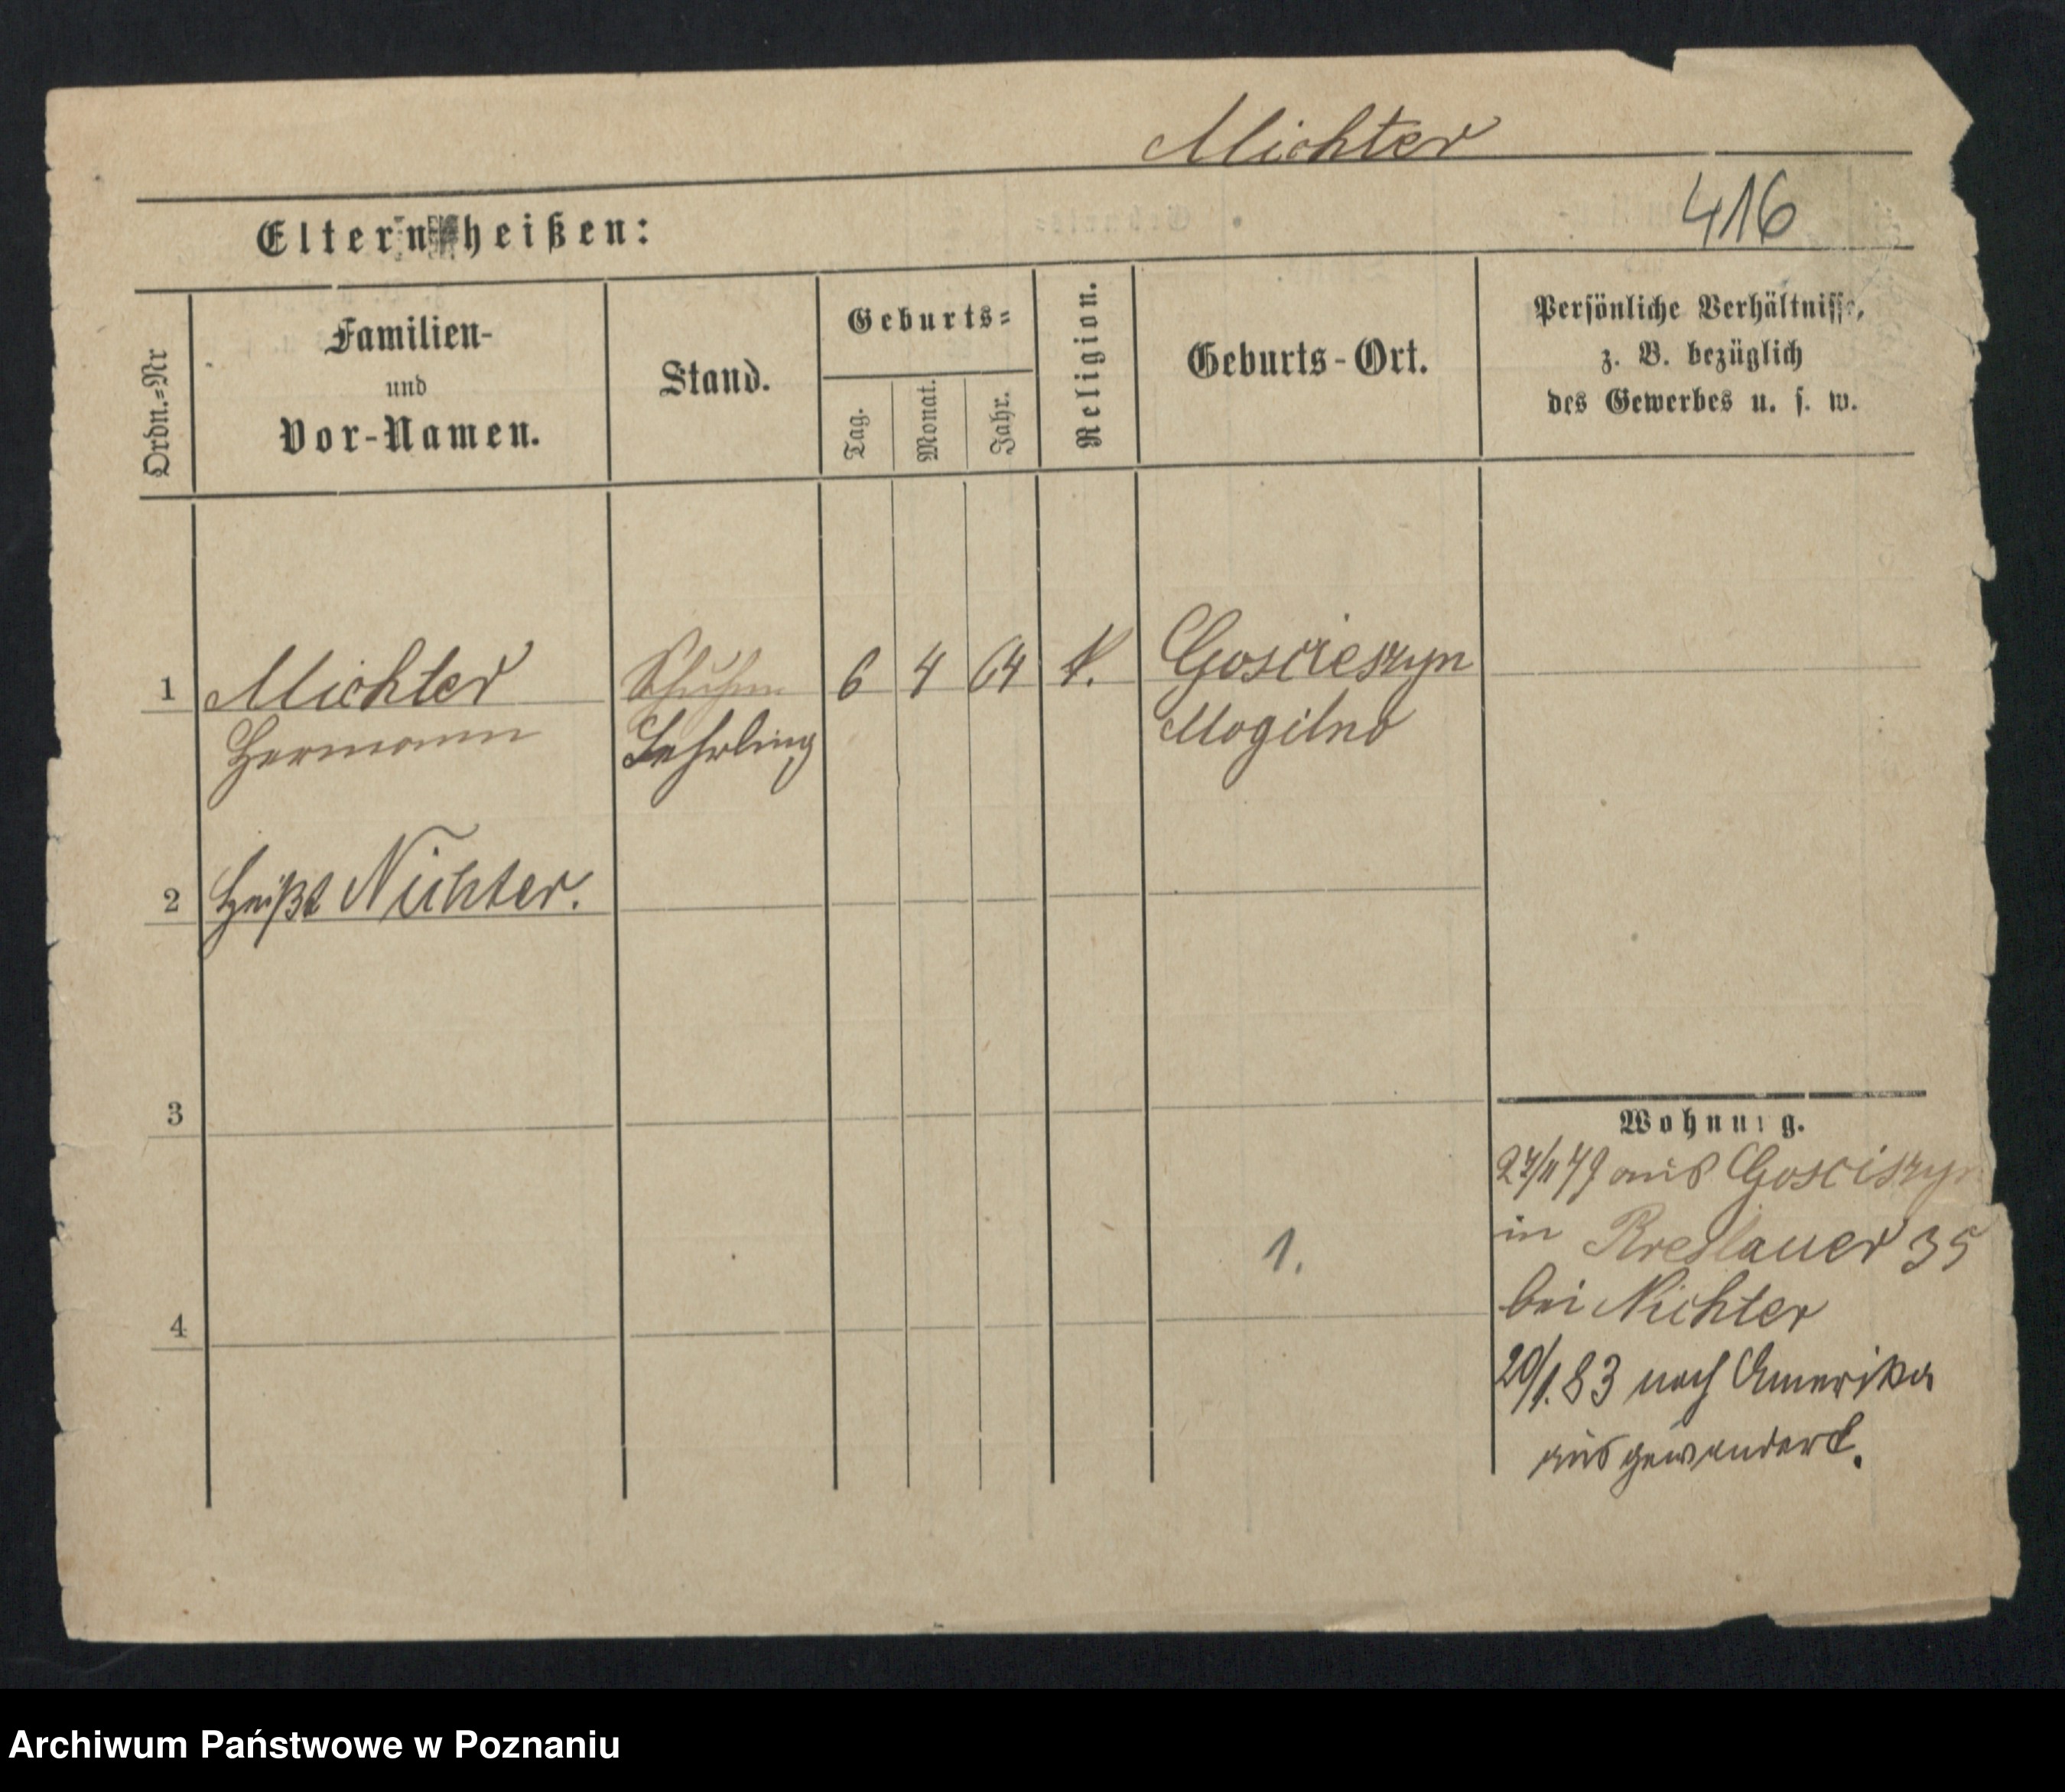 Michter
416
Eltern heißen:
Ordn.=Nr
Familien-
und
Vor-Namen.
Stand.
Geburts=
Tag.
Monat.
Jahr.
Religion.
Geburts-Ort.
Persönliche Verhältnisse,
z. B. bezüglich
des Gewerbes u. s. w.
1 Michter Schuhm 6 4 64 k. Goscieszyn
Hermann Lehrling Mogilno
2 heißt Nichter.
3
Wohnung.
27/11 79 aus Gosciszyn
in Breslauer 35
1.
bei Nichter
4
20/1. 83 nach Amerika
ausgewandert.
Archiwum Państwowe w Poznaniu